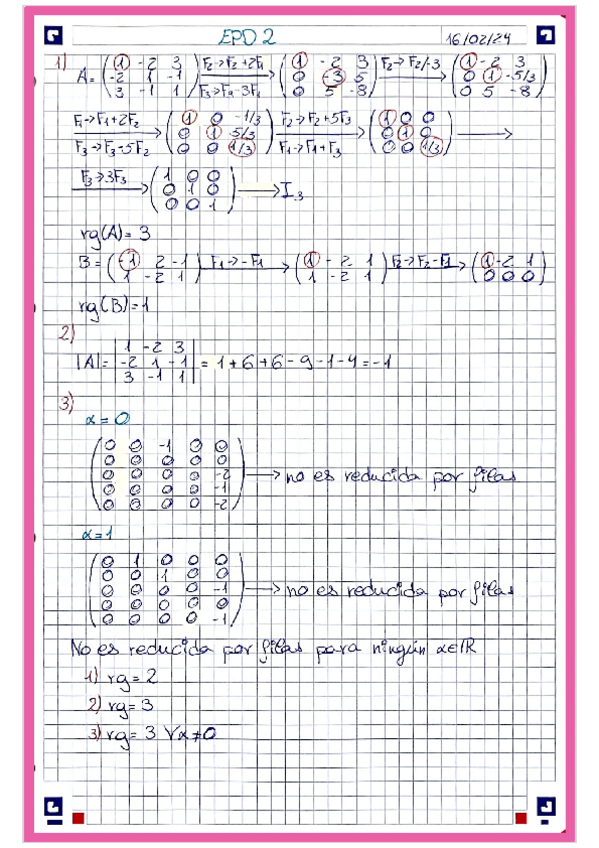 EPD 2 16/02/24
1) A = ( 1 -2 3 ; -2 1 -1 ; 3 -1 1 ) F2→F2+2F1 F3→F3-3F1 ( 1 -2 3 ; 0 -3 5 ; 0 5 -8 ) F2→F2/-3 ( 1 -2 3 ; 0 1 -5/3 ; 0 5 -8 )
F1→F1+2F2 F3→F3-5F2 ( 1 0 -1/3 ; 0 1 -5/3 ; 0 0 1/3 ) F2→F2+5F3 F1→F1+F3 ( 1 0 0 ; 0 1 0 ; 0 0 1/3 ) →
F3→3F3 ( 1 0 0 ; 0 1 0 ; 0 0 1 ) → I3
rg(A) = 3
B = ( -1 2 -1 ; 1 -2 1 ) F1→-F1 ( 1 -2 1 ; 1 -2 1 ) F2→F2-F1 ( 1 -2 1 ; 0 0 0 )
rg(B) = 1
2)
|A| = | 1 -2 3 ; -2 1 -1 ; 3 -1 1 | = 1 + 6 + 6 - 9 - 1 - 4 = -1
3)
α = 0
( 0 0 -1 0 0 ; 0 0 0 0 0 ; 0 0 0 0 -2 ; 0 0 0 0 -1 ; 0 0 0 0 -2 ) → no es reducida por filas
α = 1
( 0 1 0 0 0 ; 0 0 1 0 0 ; 0 0 0 0 -1 ; 0 0 0 0 0 ; 0 0 0 0 -1 ) → no es reducida por filas
No es reducida por filas para ningún α∈ℝ
1) rg = 2
2) rg = 3
3) rg = 3 ∀α≠0